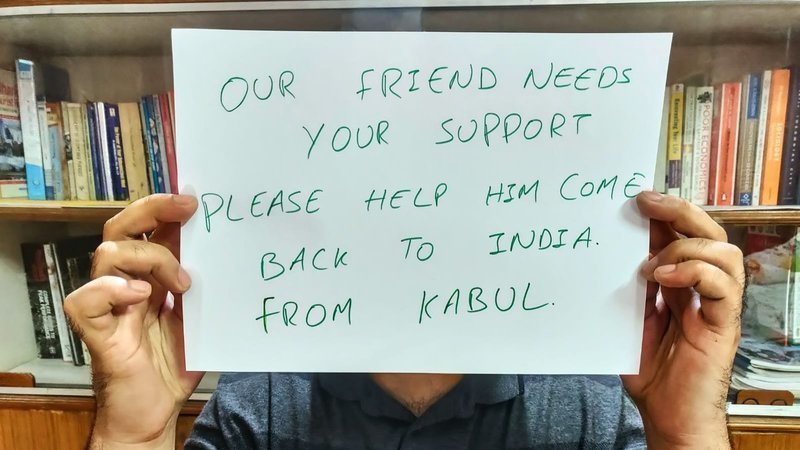 OUR FRIEND NEEDS
YOUR SUPPORT
PLEASE HELP HIM COME
BACK TO INDIA.
FROM KABUL.
POOR ECONOMICS